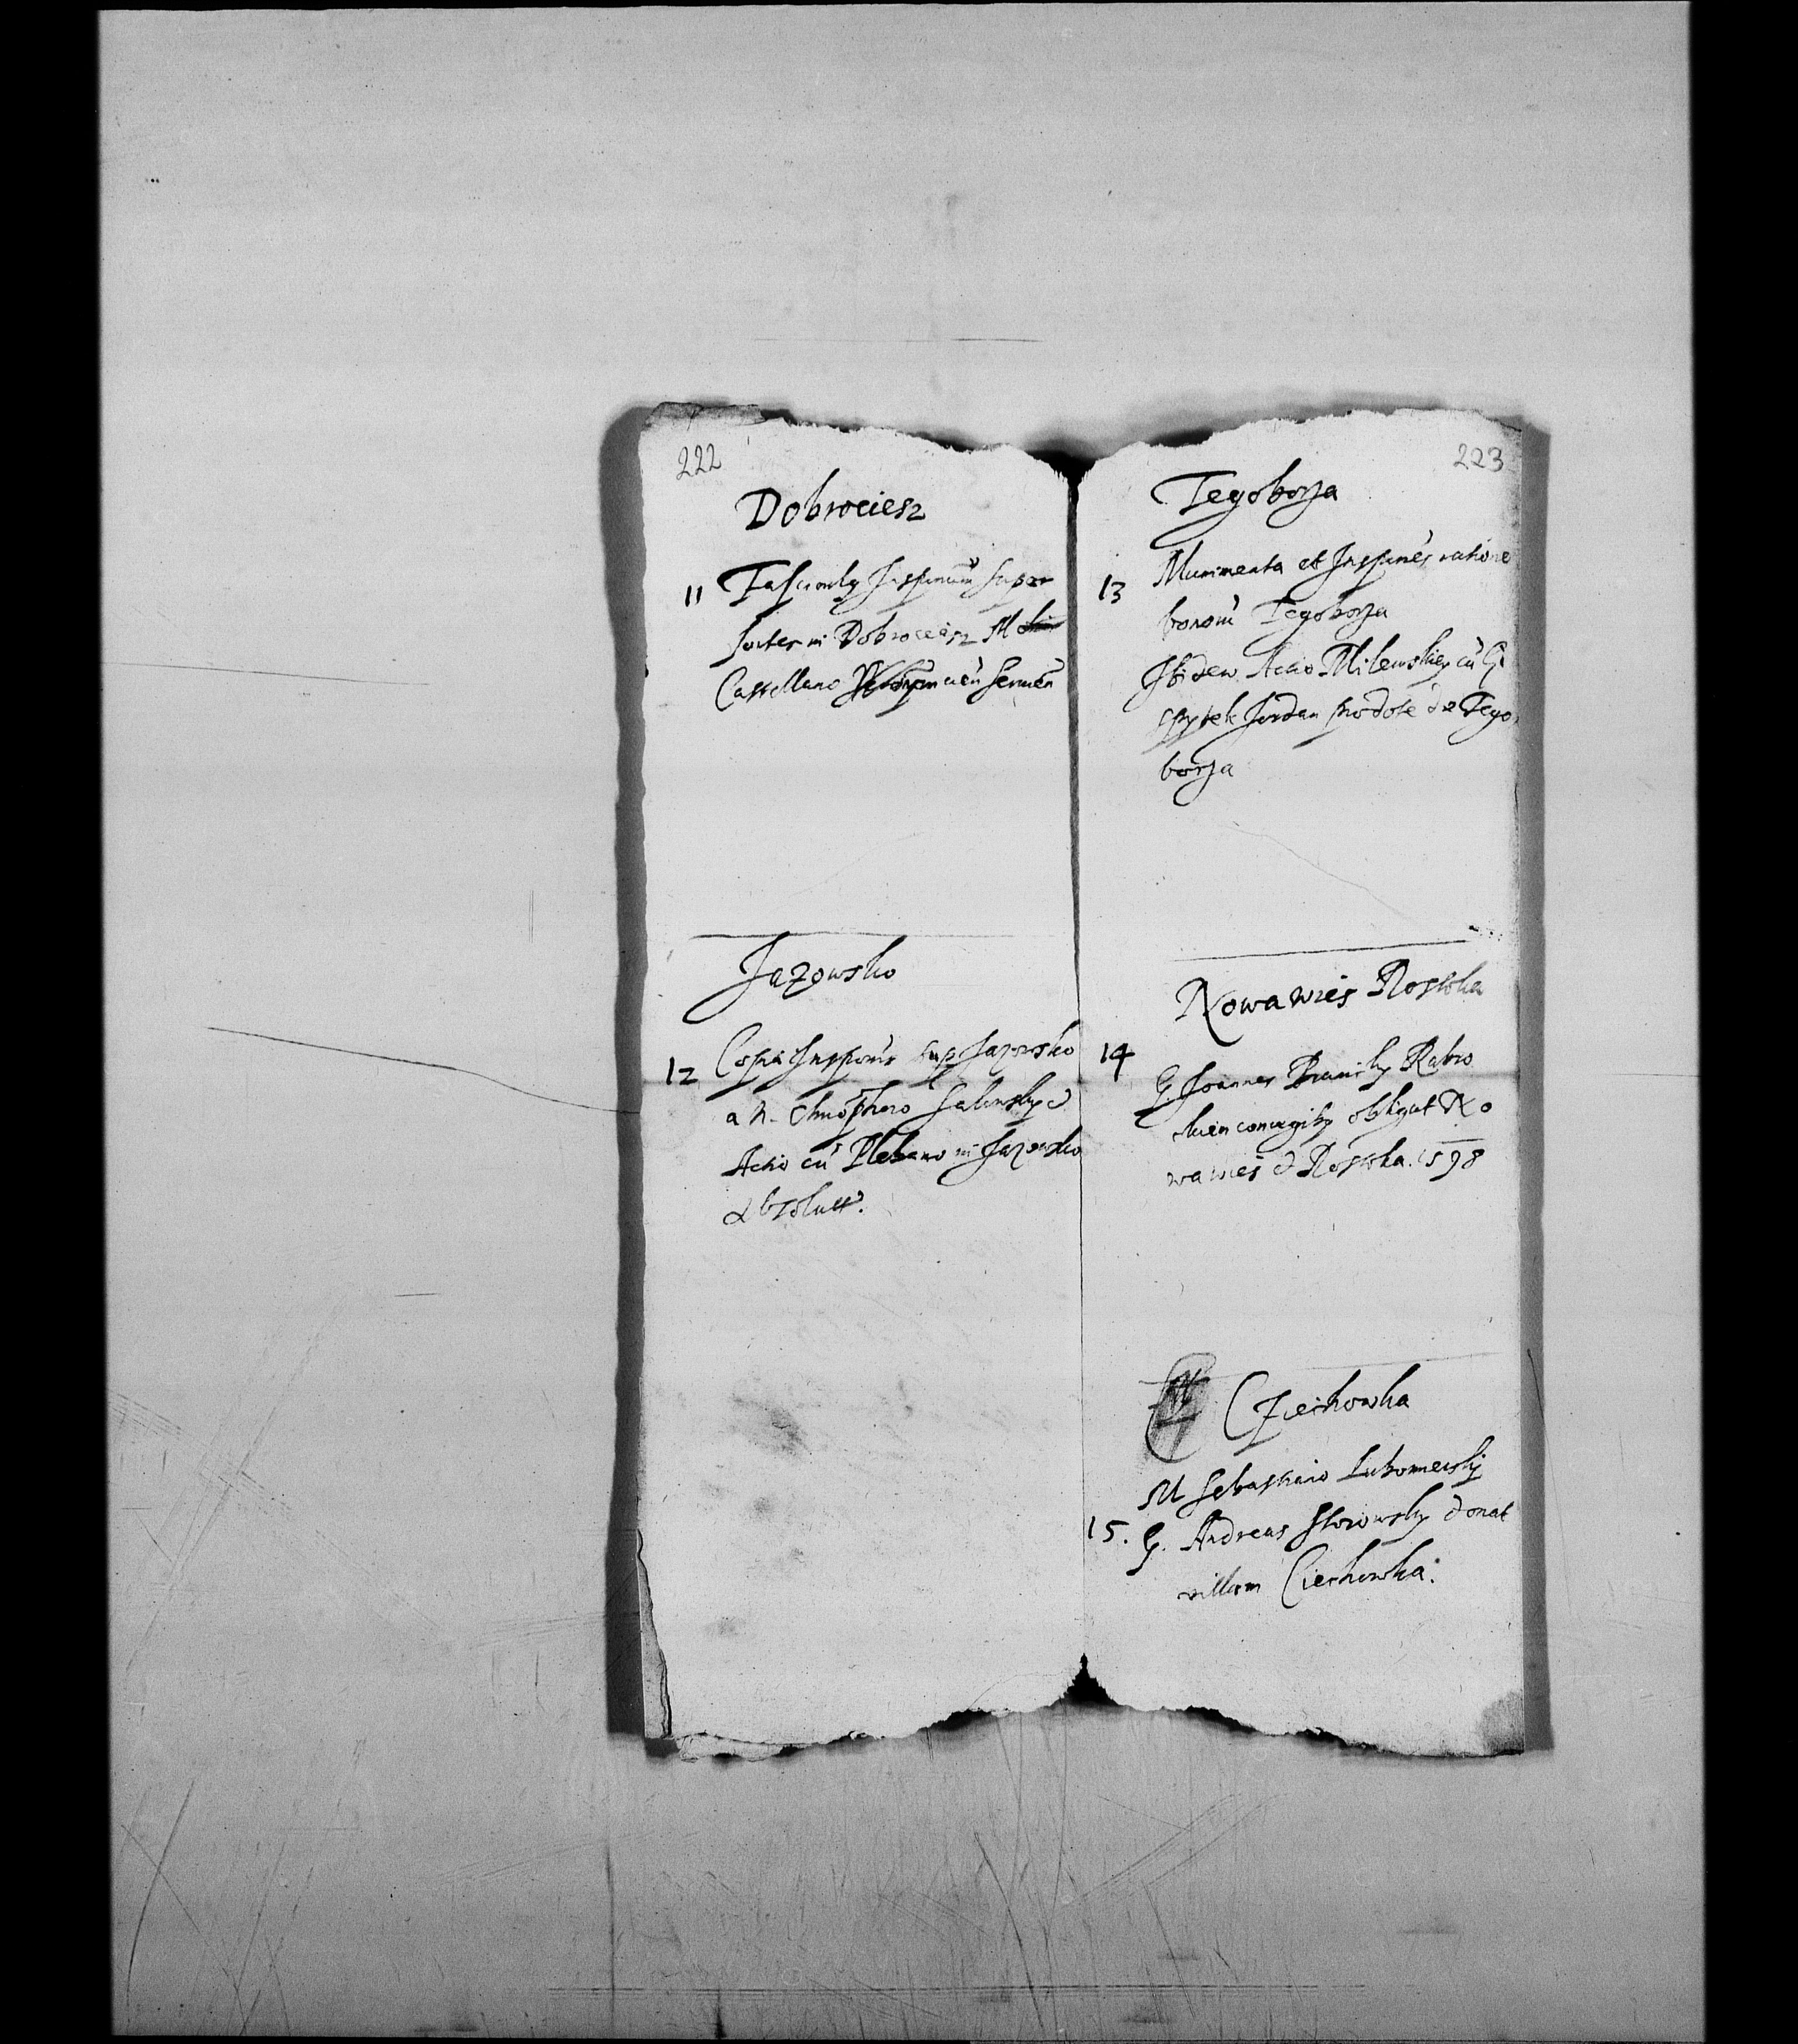 222
Dobrociesz
11 Fasciculy Inscrinum super
sortes in Dobrociesz M
Castellano
Jazowsko
12 Copia Inscrionis sup Jazowsko
a N.
Actio cu Plebano in Jazowsko
absolutt.
223
Tegoborza
13 Munimenta et Inscrines ratione
bonoru Tegoborza
Ibidem Actio Milewskiey cu G
Spytek Jordan pro dote de Tego
borza
Nowawies Rostoka
14 G. Joannes Branicky Rabro
ckien coniugiby obligat No
wawies et Rostoka. 1598
Cziechowka
M Sebastiano Lubomersky
15. G. Andreas donat
villam Ciechowka.